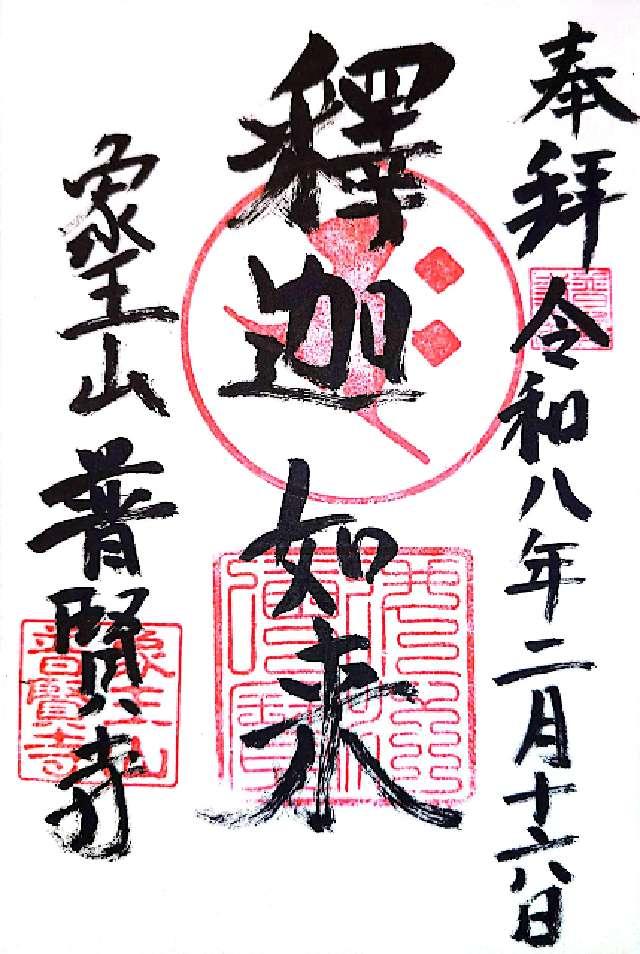 奉拝 令和八年二月十六日
釋迦如来
象王山 普賢寺
象王山
普賢寺